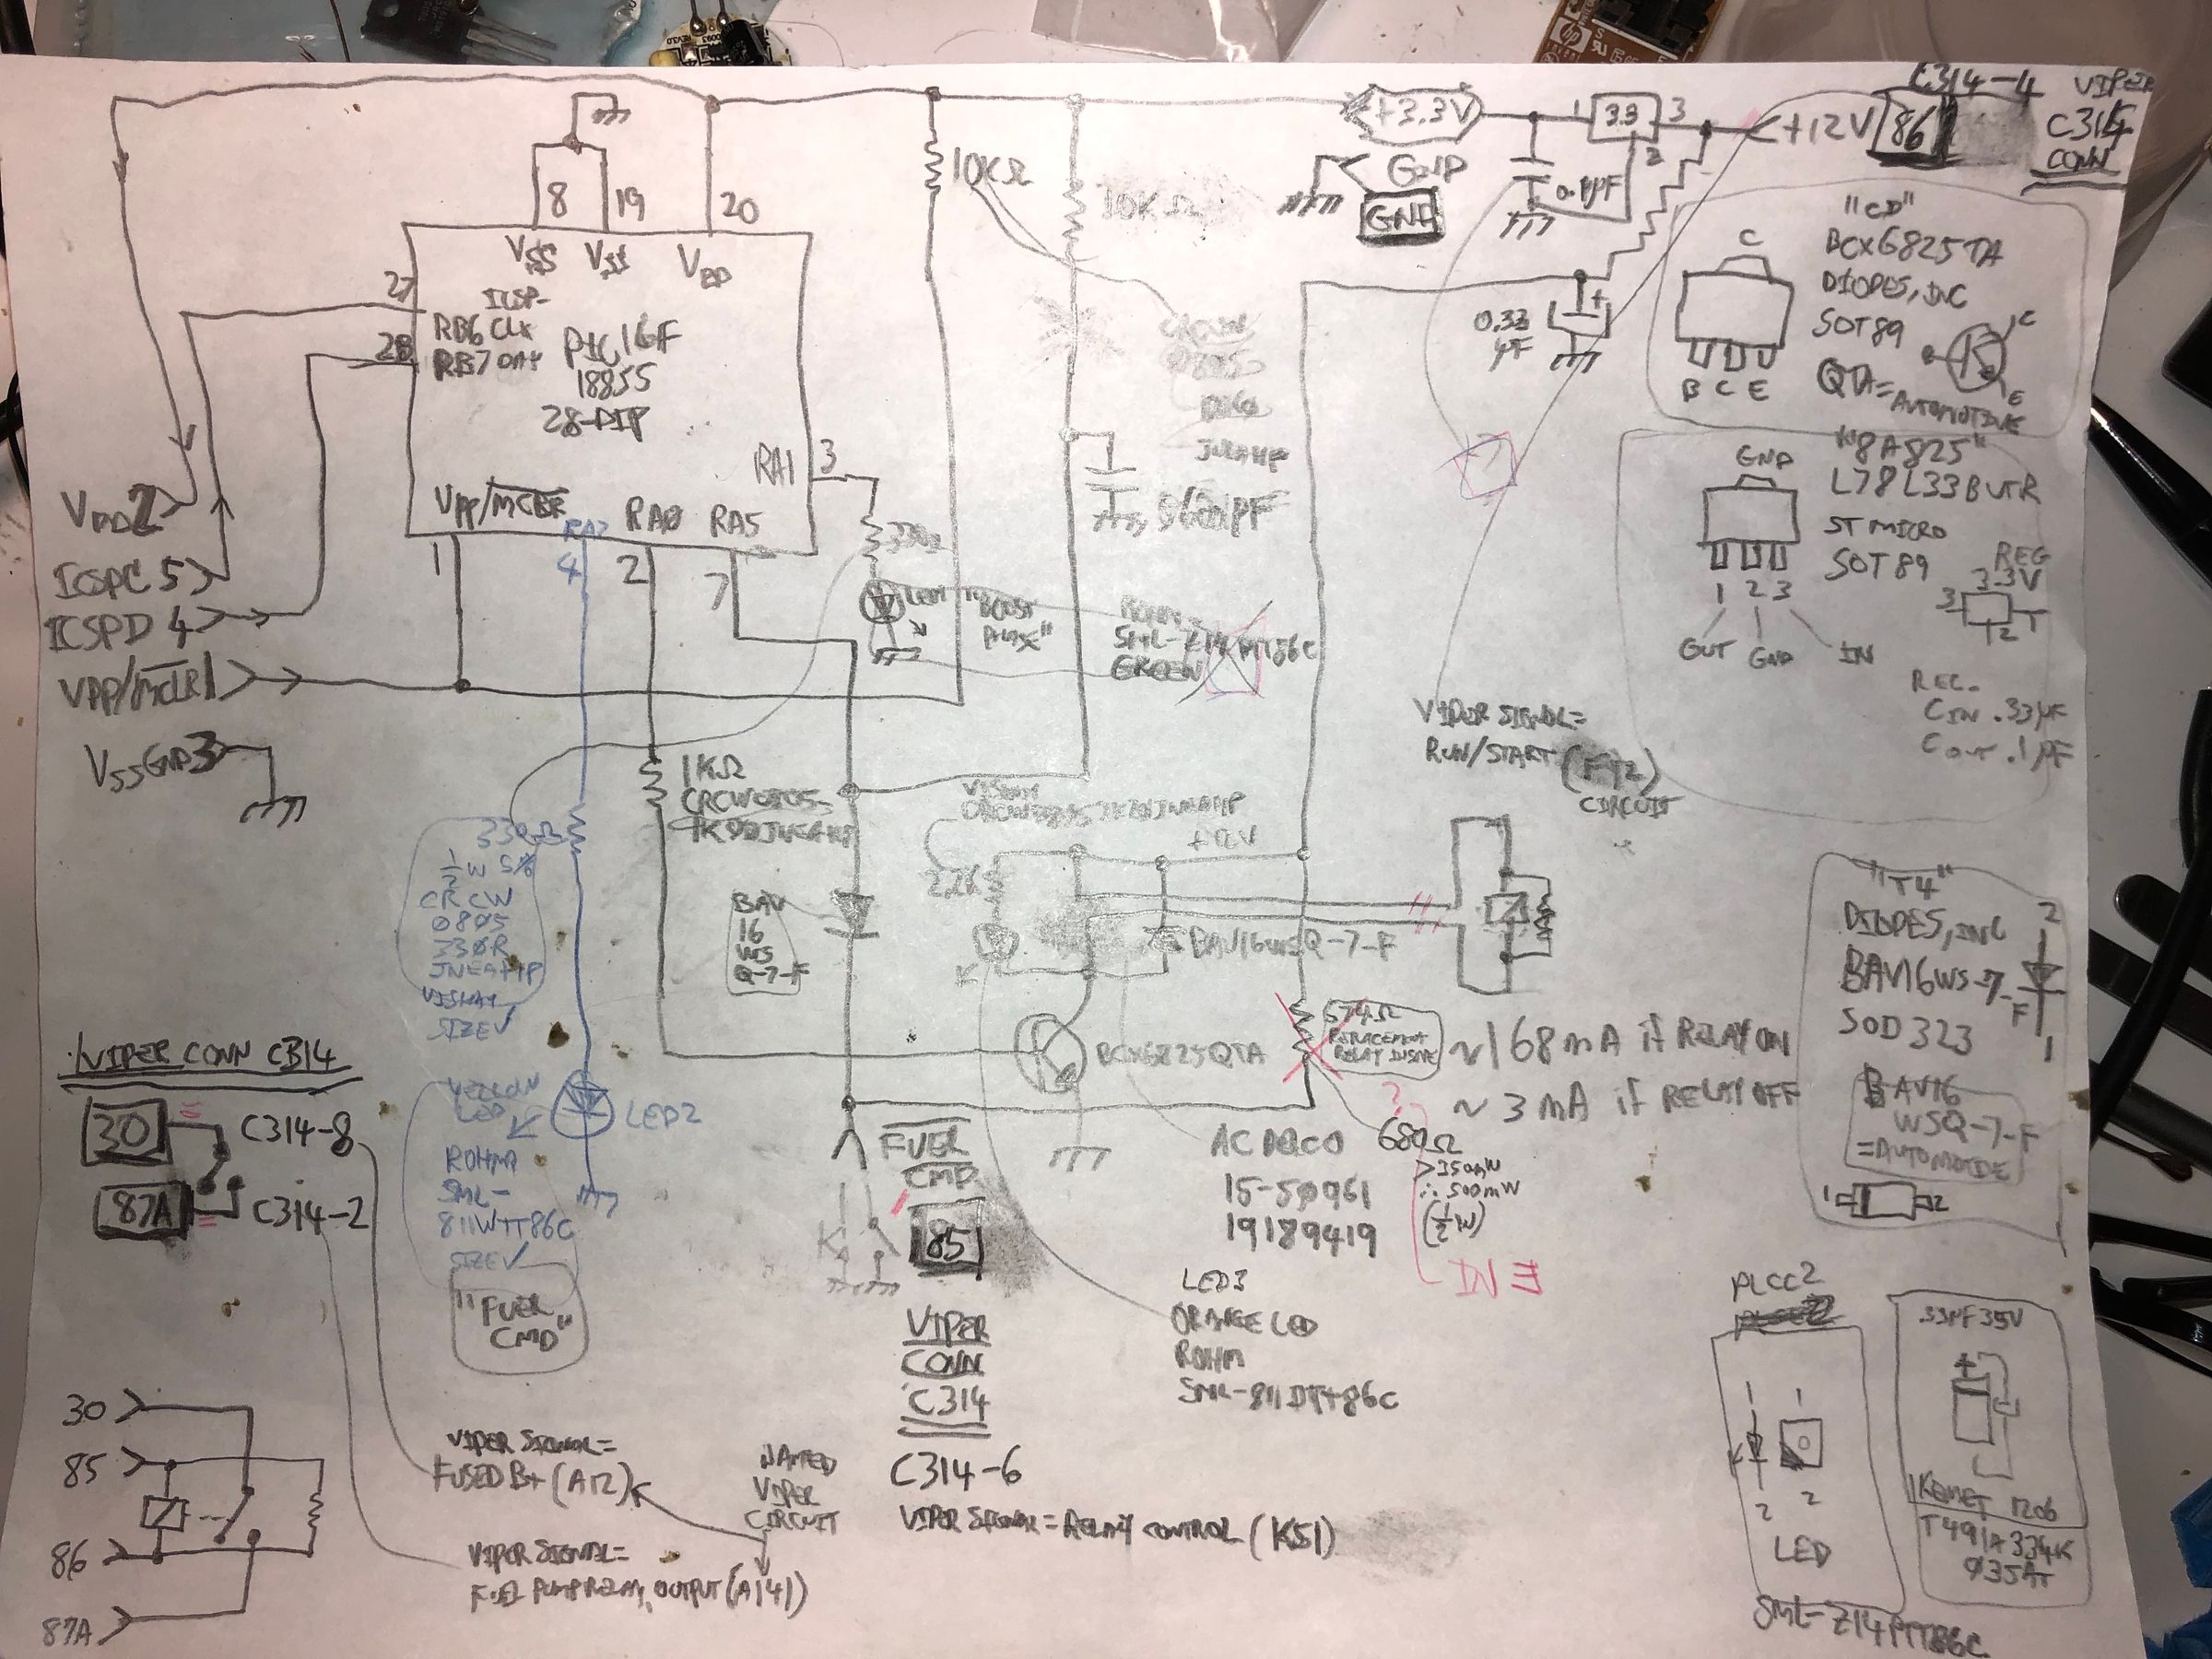 +3.3V
1
3.3
3
2
+12V
86
C314-4
VIPER
C314
CONN
GND
0.1µF
10KΩ
10KΩ
8
19
20
VSS
VSS
VDD
27
28
ICSP-
RB6 CLK
RB7 DAT
PIC16F
18855
28-DIP
RA1
3
VPP/MCLR
RA2
RA0
RA5
1
4
2
7
330Ω
VDD 2
ICSPC 5
ICSPD 4
VPP/MCLR 1
VSS GND 3
0.33
µF
"CD"
C
BCX6825TA
DIODES, INC
SOT89
QTA=
AUTOMOTIVE
B C E
C
E
"8A825"
GND
L78L33BUTR
ST MICRO
SOT89
1 2 3
OUT
GND
IN
REG
3.3V
3
1
2
REC.
CIN .33µF
COUT .1µF
ROHM
SML-Z14PTT86C
GREEN
VIPER SIGNAL=
RUN/START (F12)
CIRCUIT
1KΩ
CRCW0805
1K00JNEAHP
VISHAY
+12V
2.2K
330Ω
1/2 W 5%
CRCW
0805
330R
JNEAHP
VISHAY
SIZE✓
BAV
16
WS
Q-7-F
BAV16WSQ-7-F
BCX6825QTA
REPLACEMENT
RELAY INSIDE
~168mA if RELAY ON
~3mA if RELAY OFF
680Ω
>350mW
∴ 500mW
(1/2 W)
"T4"
DIODES, INC
BAV16WS-7-
F
SOD323
2
1
BAV16
WSQ-7-F
=AUTOMOTIVE
1
2
VIPER CONN C314
30
C314-8
87A
C314-2
YELLOW
LED
LED2
ROHM
SML-
811WTT86C
SIZE✓
"FUEL
CMD"
FUEL
CMD
85
VIPER
CONN
C314
C314-6
VIPER SIGNAL = RELAY CONTROL (K51)
AC DELCO
15-50961
19189419
LED3
ORANGE LED
ROHM
SML-811DTT86C
PLCC2
1
1
2
2
LED
SML-Z14PTT86C
.33µF 35V
+
KEMET 1206
T491A334K
035AT
30
85
86
87A
VIPER SIGNAL=
FUSED B+ (A12)
NAMED
VIPER
CIRCUIT
VIPER SIGNAL=
FUEL PUMP RELAY OUTPUT (A141)